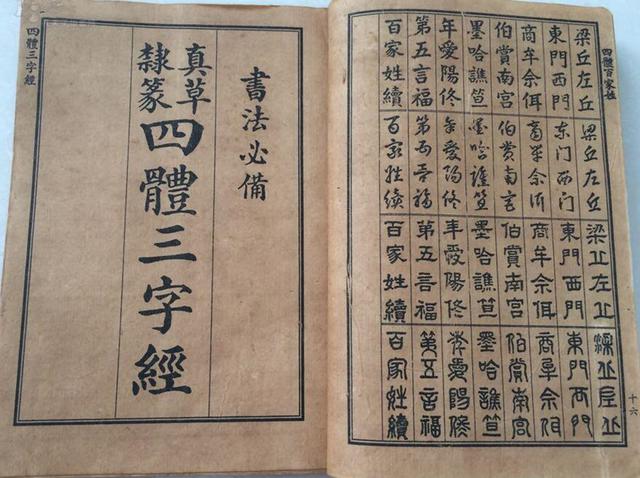 四體百家姓
十六
梁丘左丘 梁丘左丘 梁丘左丘 梁丘左丘
東門西門 东门西门 東門西門 東門西門
商牟佘佴 商牟佘佴 商牟佘佴 商牟佘佴
伯賞南宮 伯賞南宮 伯賞南宮 伯賞南宮
墨哈譙笪 墨哈譙笪 墨哈譙笪 墨哈譙笪
年愛陽佟 年愛陽佟 年愛陽佟 年愛陽佟
第五言福 第五言福 第五言福 第五言福
百家姓續 百家姓續 百家姓續 百家姓續
書法必備
真草
隸篆
四體三字經
四體三字經